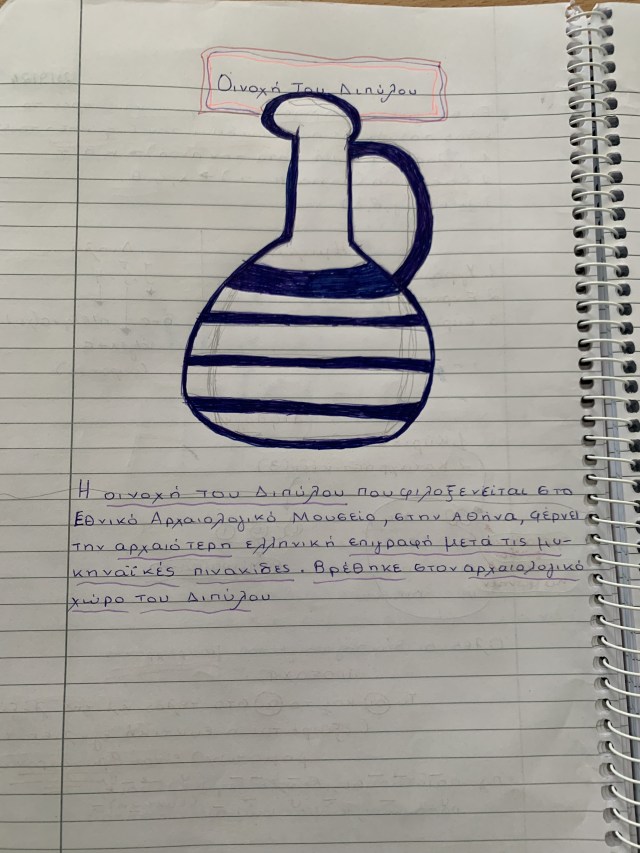 Οινοχή του Διπύλου
Η οινοχή του Διπύλου που φιλοξενείται στο
Εθνικό Αρχαιολογικό Μουσείο, στην Αθήνα, φέρνει
την αρχαιότερη ελληνική επιγραφή μετά τις μυ-
κηναϊκές πινακίδες. Βρέθηκε στον αρχαιολογικό
χώρο του Διπύλου